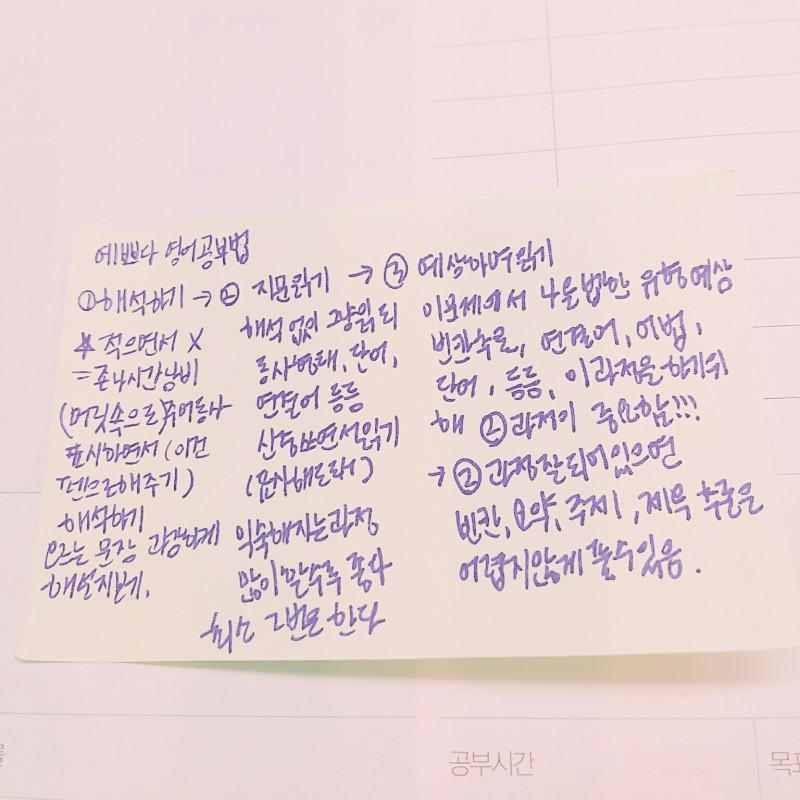 예쁘다 영어공부법
①해석하기 → ② 지문읽기 → ③ 예상하며읽기
* 적으면서 X
= 존나시간낭비
(머릿속으로)주어동사
표시하면서 (이건
펜으로해주기)
해석하기
모르는 문장 과감하게
해설지베.
해석 없이 그냥읽되
동사형태, 단어,
연결어 등등
신경쓰면서읽기
익숙해지는과정
많이할수록 좋다
최소 2번은 한다
이문제에서 나올법한 유형예상
빈칸, 연결어, 어법,
단어, 등등, 이과정을 하기위
해 ②과정이 중요함!!!
→ ②과정잘되어있으면
빈칸, 요약, 주제, 제목 추론을
어렵지않게 풀수있음.
공부시간
목표